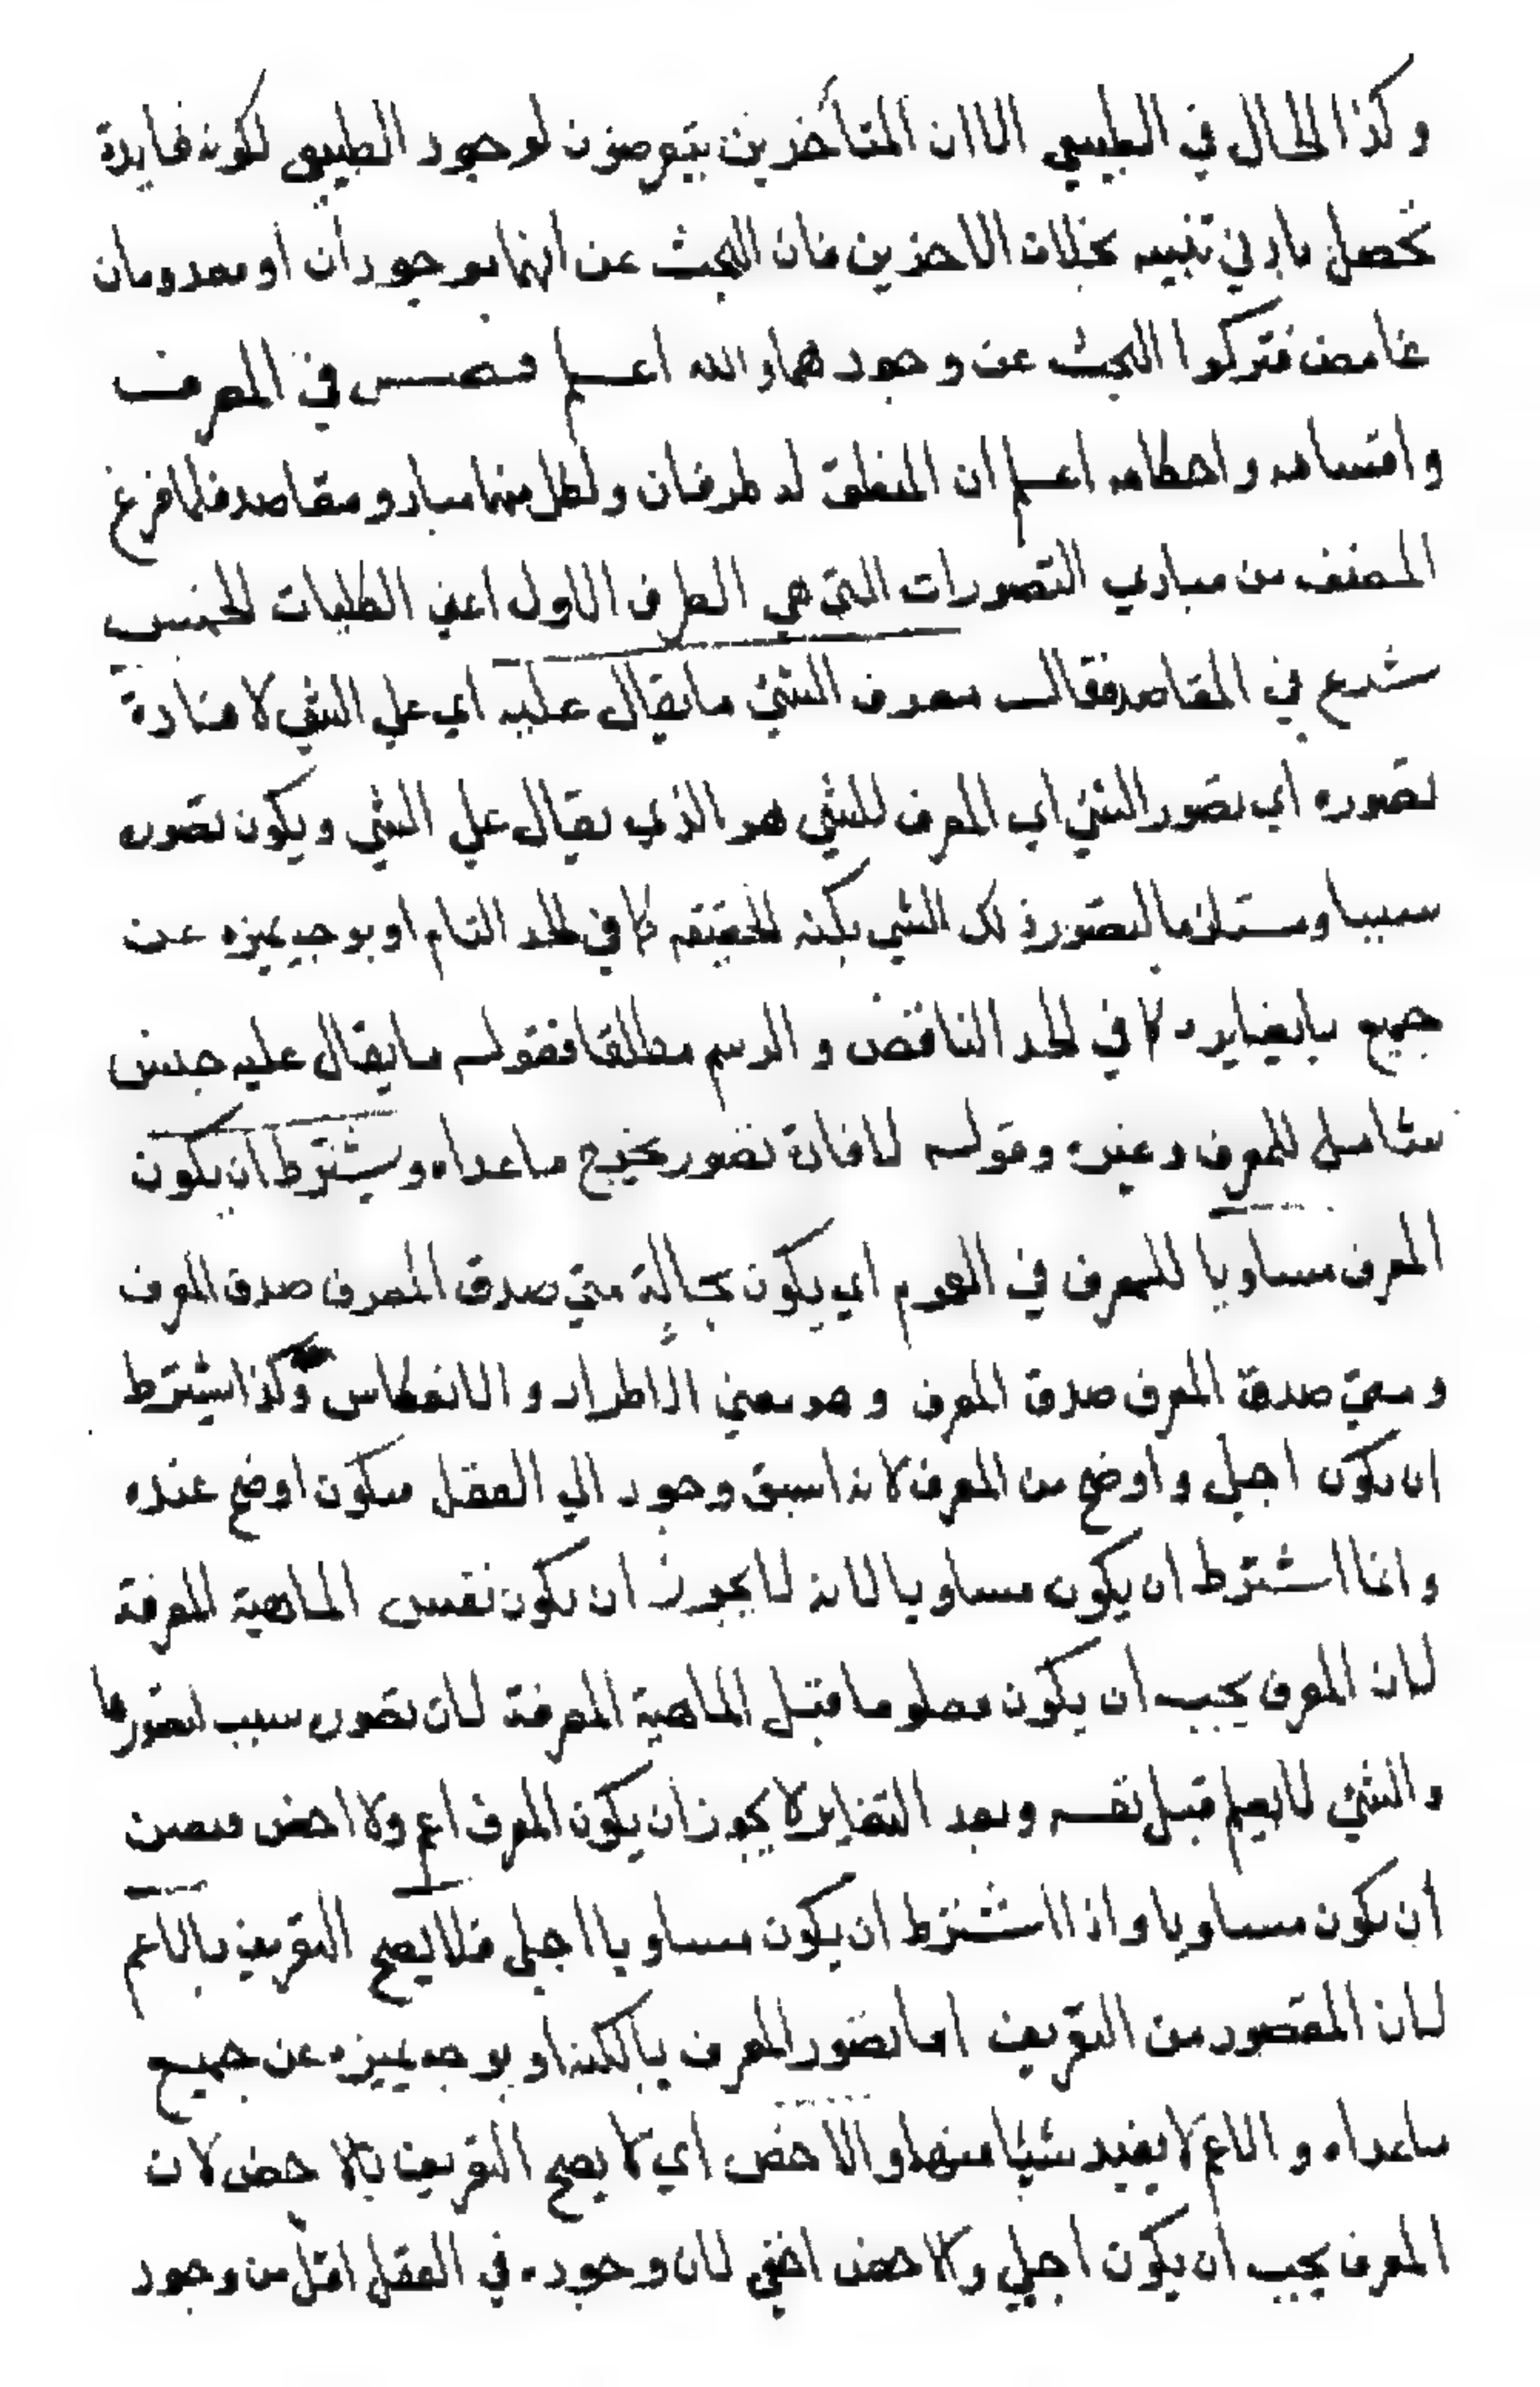 وكذا الحال في الطبيعي الا ان المتأخرين يتعرضون لوجود الطبيعي لكونه فايدة
تحصل بادني تنبيه بخلاف الاخرين فان البحث عن انهما موجودان أو معدومان
غامض فتركوا البحث عن وجودهما والله اعلم فصل في المعرف
واقسامه واحكامه اعلم ان المنطق له طرفان ولكل منهما مباد ومقاصد فلما فرغ
المصنف من مبادي التصورات التي هي الطرف الاول اعني الكليات الخمس
شرع في المقاصد فقال معرف الشئ ما يقال عليه اي علي الشي لافادة
تصوره اي تصور الشئ اي المعرف للشي هو الذي يقال علي الشي ويكون تصوره
سببا ومستلزما لتصور ذلك الشي بكنه الحقيقه كما في الحد التام او بوجه يميزه عن
جميع ما يغايره كما في الحد الناقص والرسم مطلقا فقوله ما يقال عليه جنس
شامل للمعرف وغيره وقوله لافادة تصور يخرج ما عداه ويشترط ان يكون
المعرف مساويا للمعرف في العموم اي يكون بحالة متي صدق المعرف صدق المعرف
ومتي صدق المعرف صدق المعرف وهو معني الاطراد والانعكاس وكذا يشترط
ان يكون اجلي واوضح من المعرف لانه اسبق وجود الي العقل فيكون اوضح عنده
وانما اشترط ان يكون مساويا لانه لا يجوز ان يكون نفس الماهية المعرفة
لان المعرف يجب ان يكون معلوما قبل الماهية المعرفة لان تصوره سبب لتصورها
والشئ لا يعلم قبل نفسه وبعد التغاير لا يجوز ان يكون المعرف اعم ولا اخص فتعين
أن يكون مساويا واذا اشترط ان يكون مساويا اجلي فلا يصح التعريف بالاعم
لان المقصود من التعريف اما تصور المعرف بالكنه او بوجه يميزه عن جميع
ما عداه والاعم لا يفيد شيا منهما والاخص اي لا يصح التعريف بالاخص لان
المعرف يجب أن يكون اجلي والاخص اخفي لان وجوده في العقل اقل من وجود